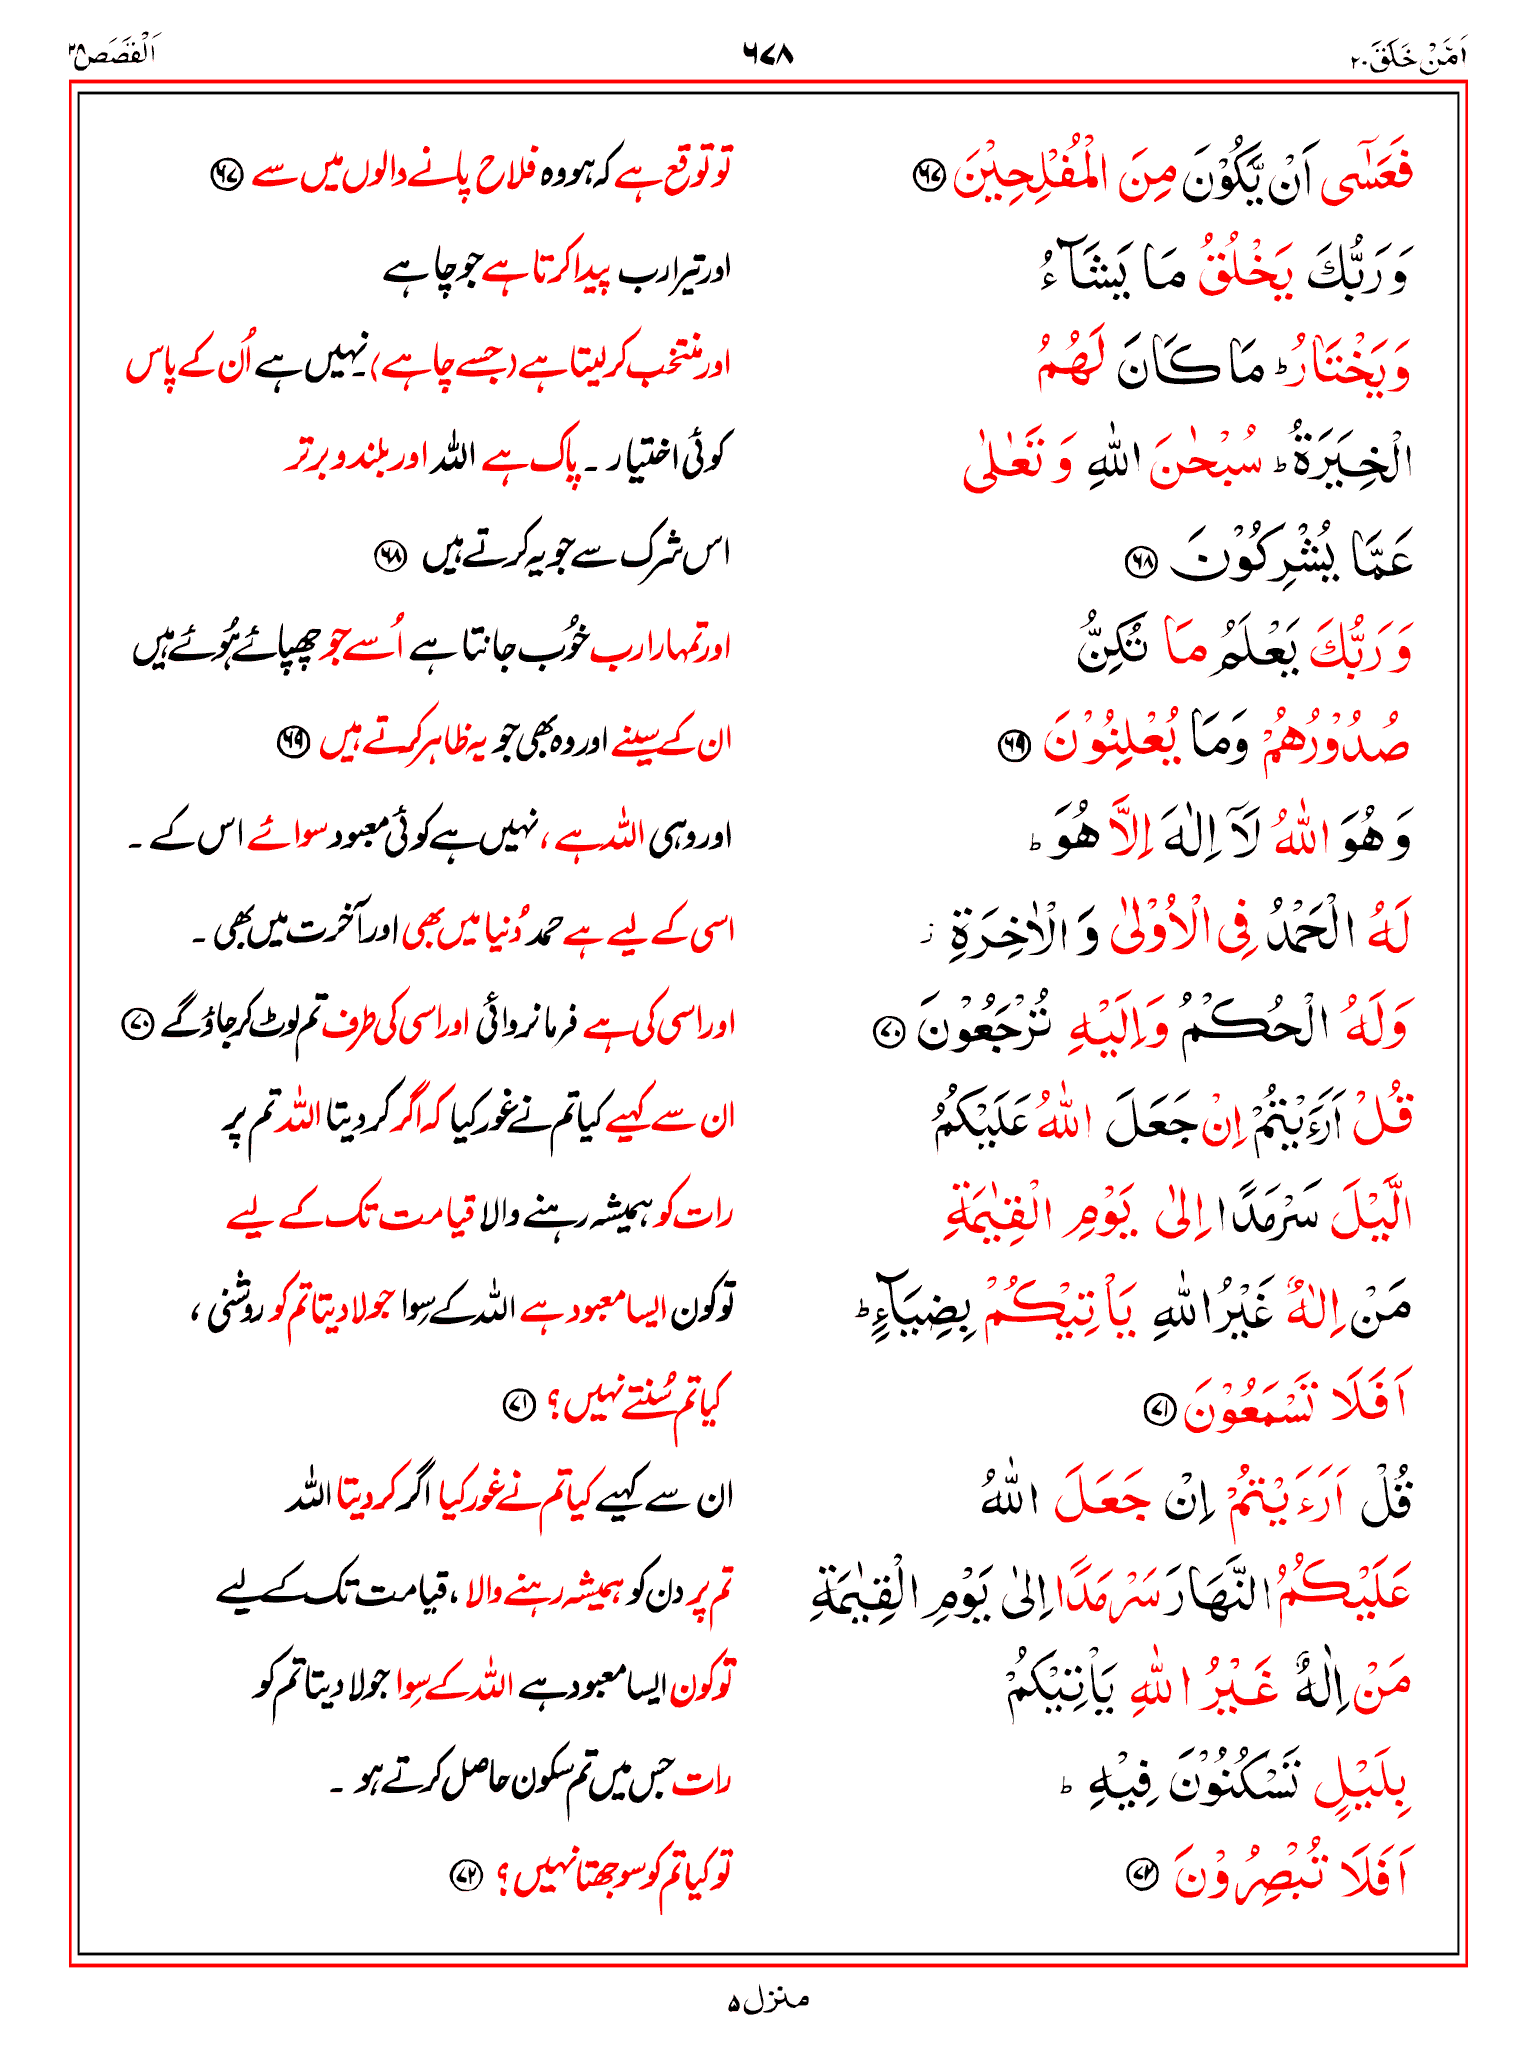 اَمَّنْ خَلَقَ ٢٠ ٦٧٨ اَلْقَصَص ٢٨
فَعَسٰٓى اَنْ يَّكُوْنَ مِنَ الْمُفْلِحِيْنَ ۝٦٧ تو توقع ہے کہ ہو وہ فلاح پانے والوں میں سے ۝٦٧
وَ رَبُّكَ يَخْلُقُ مَا يَشَآءُ اور تیرا رب پیدا کرتا ہے جو چاہے
وَيَخْتَارُ ؕ مَا كَانَ لَهُمُ اور منتخب کر لیتا ہے (جسے چاہے)۔ نہیں ہے اُن کے پاس
الْخِيَرَةُ ؕ سُبْحٰنَ اللّٰهِ وَ تَعٰلٰى کوئی اختیار ۔ پاک ہے اللہ اور بلند و برتر
عَمَّا يُشْرِكُوْنَ ۝٦٨ اس شرک سے جو یہ کرتے ہیں ۝٦٨
وَ رَبُّكَ يَعْلَمُ مَا تُكِنُّ اور تمہارا رب خُوب جانتا ہے اُسے جو چھپائے ہُوئے ہیں
صُدُوْرُهُمْ وَمَا يُعْلِنُوْنَ ۝٦٩ ان کے سینے اور وہ بھی جو یہ ظاہر کرتے ہیں ۝٦٩
وَ هُوَ اللّٰهُ لَآ اِلٰهَ اِلَّا هُوَ ؕ اور وہی اللہ ہے ، نہیں ہے کوئی معبود سوائے اس کے ۔
لَهُ الْحَمْدُ فِى الْاُوْلٰى وَ الْاٰخِرَةِ ز اسی کے لیے ہے حمد دُنیا میں بھی اور آخرت میں بھی ۔
وَلَهُ الْحُكْمُ وَاِلَيْهِ تُرْجَعُوْنَ ۝٧٠ اور اسی کی ہے فرمانروائی اور اسی کی طرف تم لوٹ کر جاؤ گے ۝٧٠
قُلْ اَرَءَيْتُمْ اِنْ جَعَلَ اللّٰهُ عَلَيْكُمُ ان سے کہیے کیا تم نے غور کیا کہ اگر کر دیتا اللہ تم پر
الَّيْلَ سَرْمَدًا اِلٰى يَوْمِ الْقِيٰمَةِ رات کو ہمیشہ رہنے والا قیامت تک کے لیے
مَنْ اِلٰهٌ غَيْرُ اللّٰهِ يَاْتِيْكُمْ بِضِيَآءٍ ؕ تو کون ایسا معبود ہے اللہ کے سِوا جو لا دیتا تم کو روشنی ،
اَفَلَا تَسْمَعُوْنَ ۝٧١ کیا تم سُنتے نہیں؟ ۝٧١
قُلْ اَرَءَيْتُمْ اِنْ جَعَلَ اللّٰهُ ان سے کہیے کیا تم نے غور کیا اگر کر دیتا اللہ
عَلَيْكُمُ النَّهَارَ سَرْمَدًا اِلٰى يَوْمِ الْقِيٰمَةِ تم پر دن کو ہمیشہ رہنے والا ، قیامت تک کے لیے
مَنْ اِلٰهٌ غَيْرُ اللّٰهِ يَاْتِيْكُمْ تو کون ایسا معبود ہے اللہ کے سِوا جو لا دیتا تم کو
بِلَيْلٍ تَسْكُنُوْنَ فِيْهِ ؕ رات جس میں تم سکون حاصل کرتے ہو ۔
اَفَلَا تُبْصِرُوْنَ ۝٧٢ تو کیا تم کو سوجھتا نہیں؟ ۝٧٢
منزل ۵